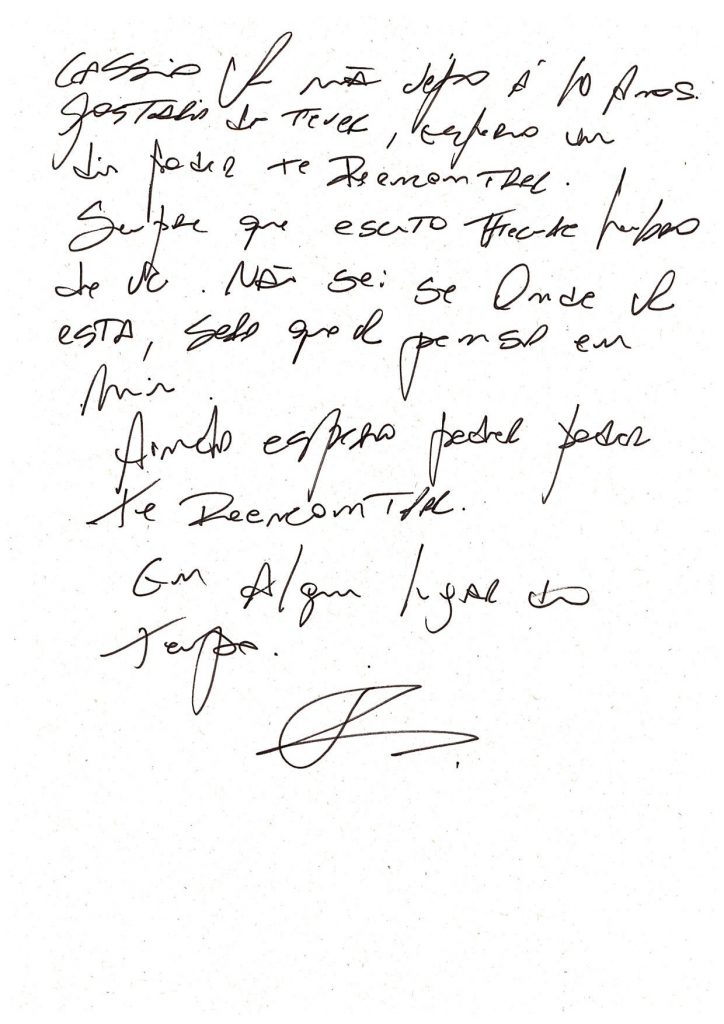 CASSIO VC NÃ vejo A 10 Anos.
gostario de Te ver, espero um
dia poder te ReencomTRAR.
Sempre que escuto lembro
de vc. NÃo sei se Onde vc
esta, que vc penso em
mim.
Aindo espero poder poder
te ReencomTRAR.
Em Algum lugar do
tempo.